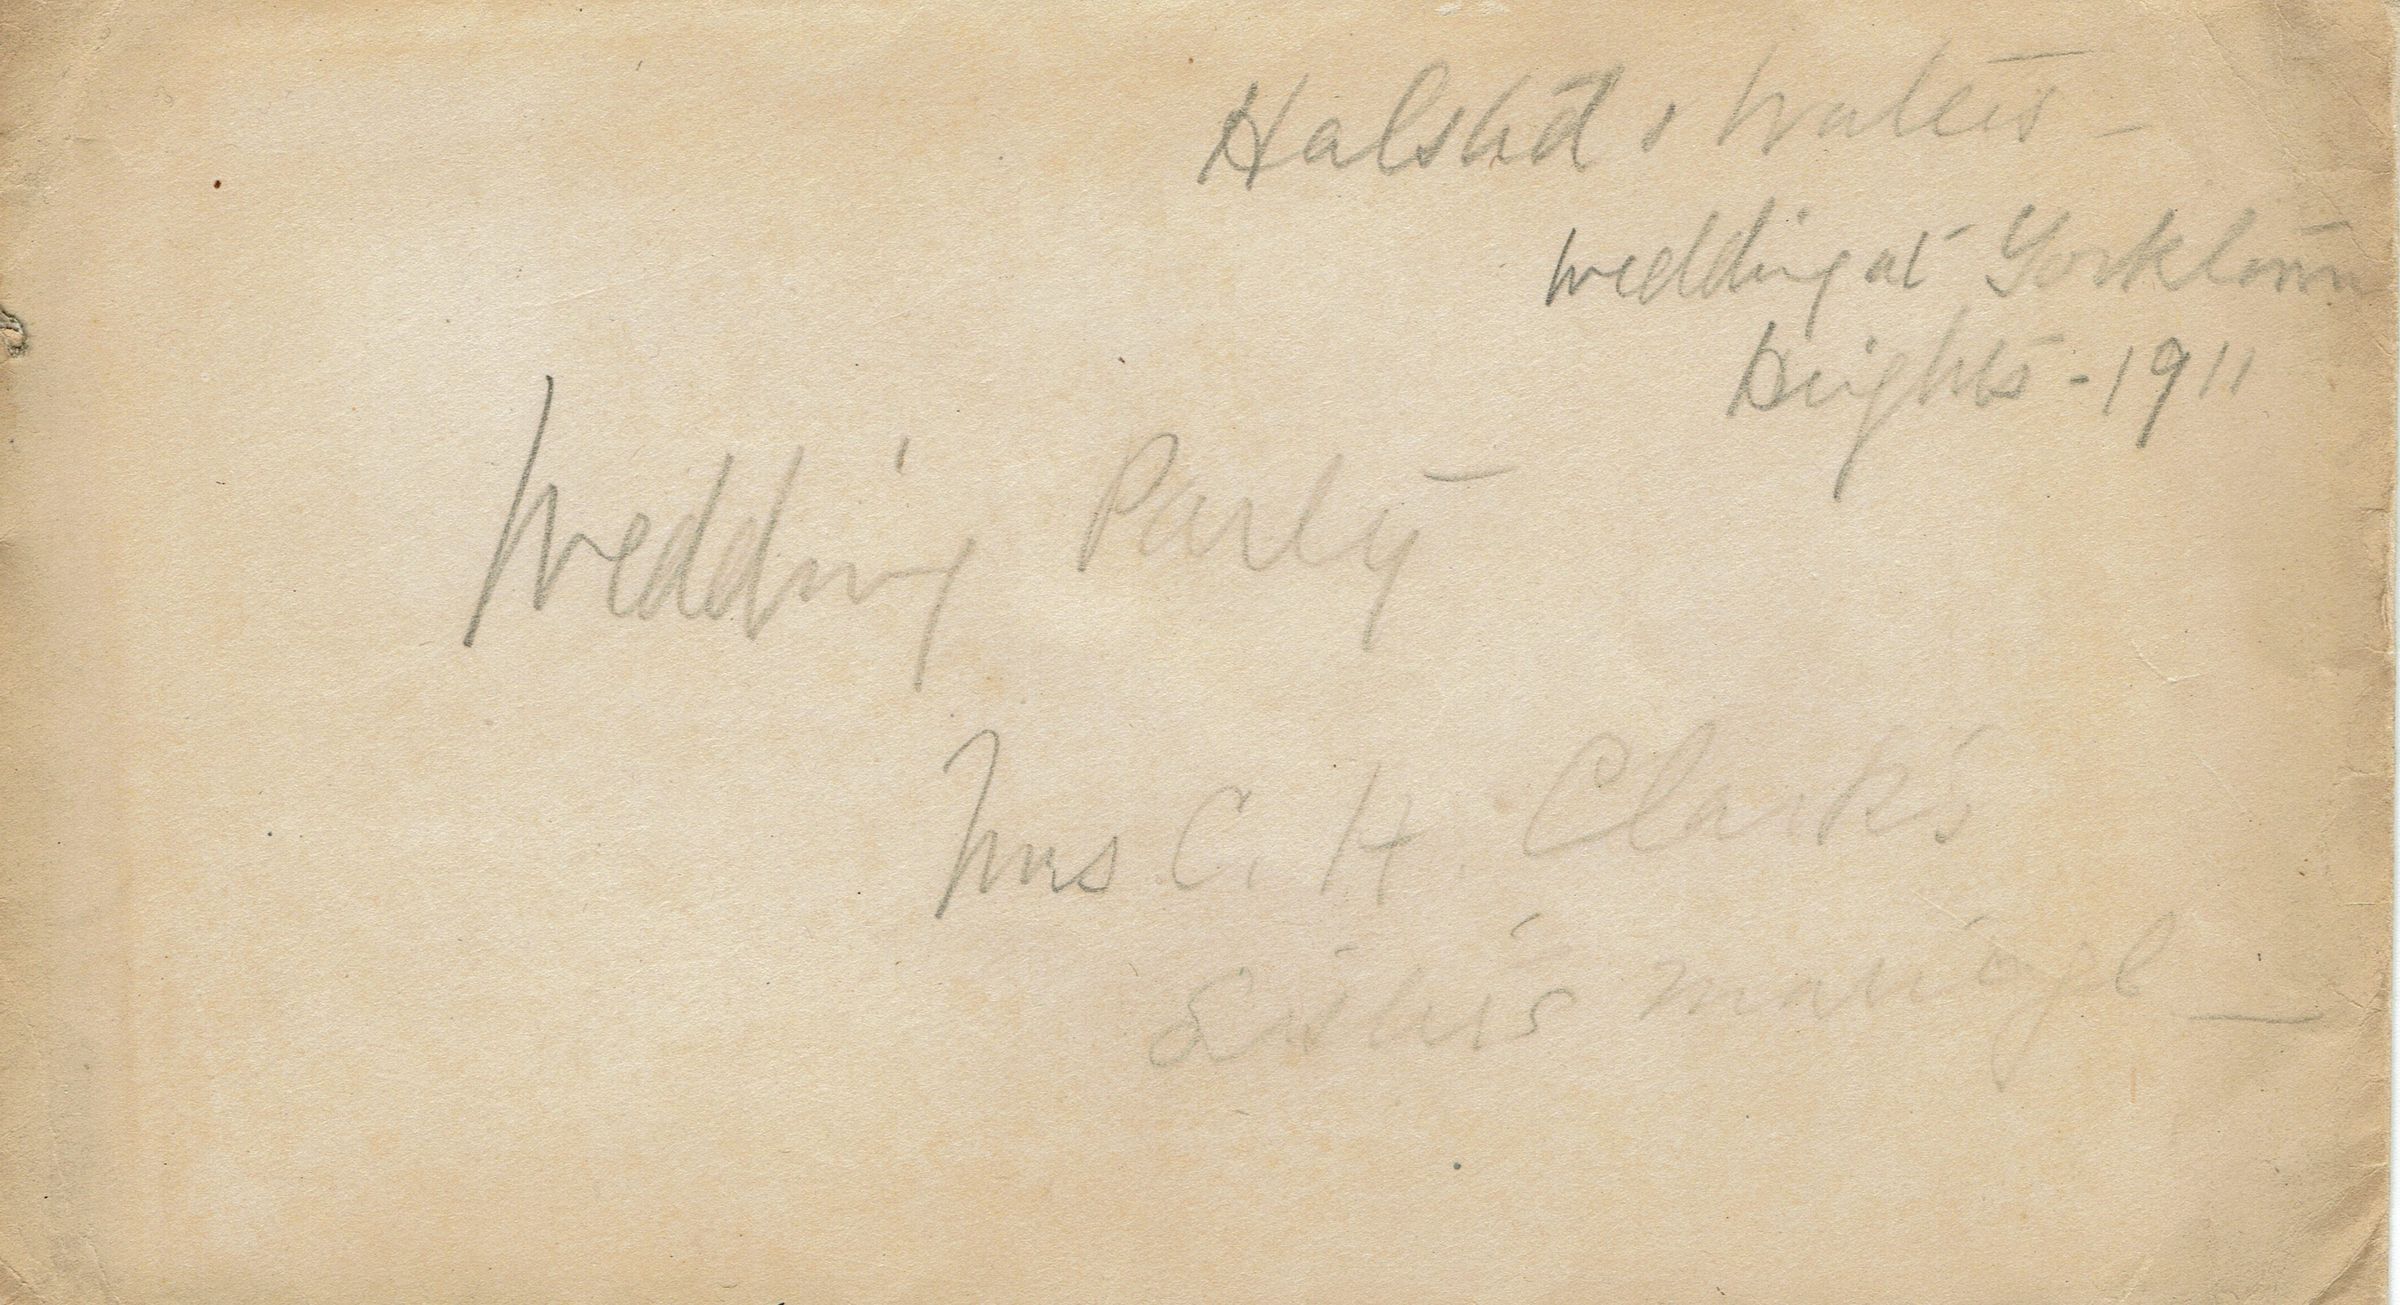 Halsted & Waters -
wedding at Yorktown
Heights - 1911
Wedding Party -
Mrs C. H. Clark's
Sister's marriage —